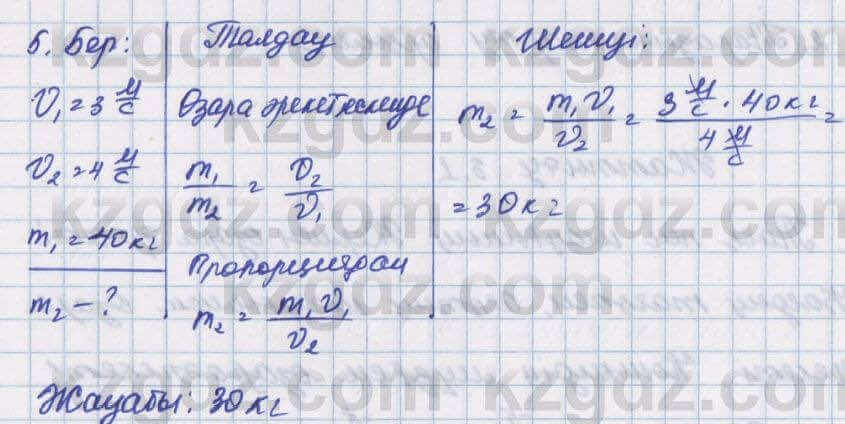 5. Бер:
υ₁ = 3 м/с
υ₂ = 4 м/с
m₁ = 40 кг
m₂ — ?
Талдау
Өзара әрекеттескенде
m₁/m₂ = υ₂/υ₁
Пропорциядан
m₂ = m₁υ₁/υ₂
Шешуі:
m₂ = m₁υ₁/υ₂ = 3 м/с · 40 кг / 4 м/с =
= 30 кг
Жауабы: 30 кг
kzgdz.com